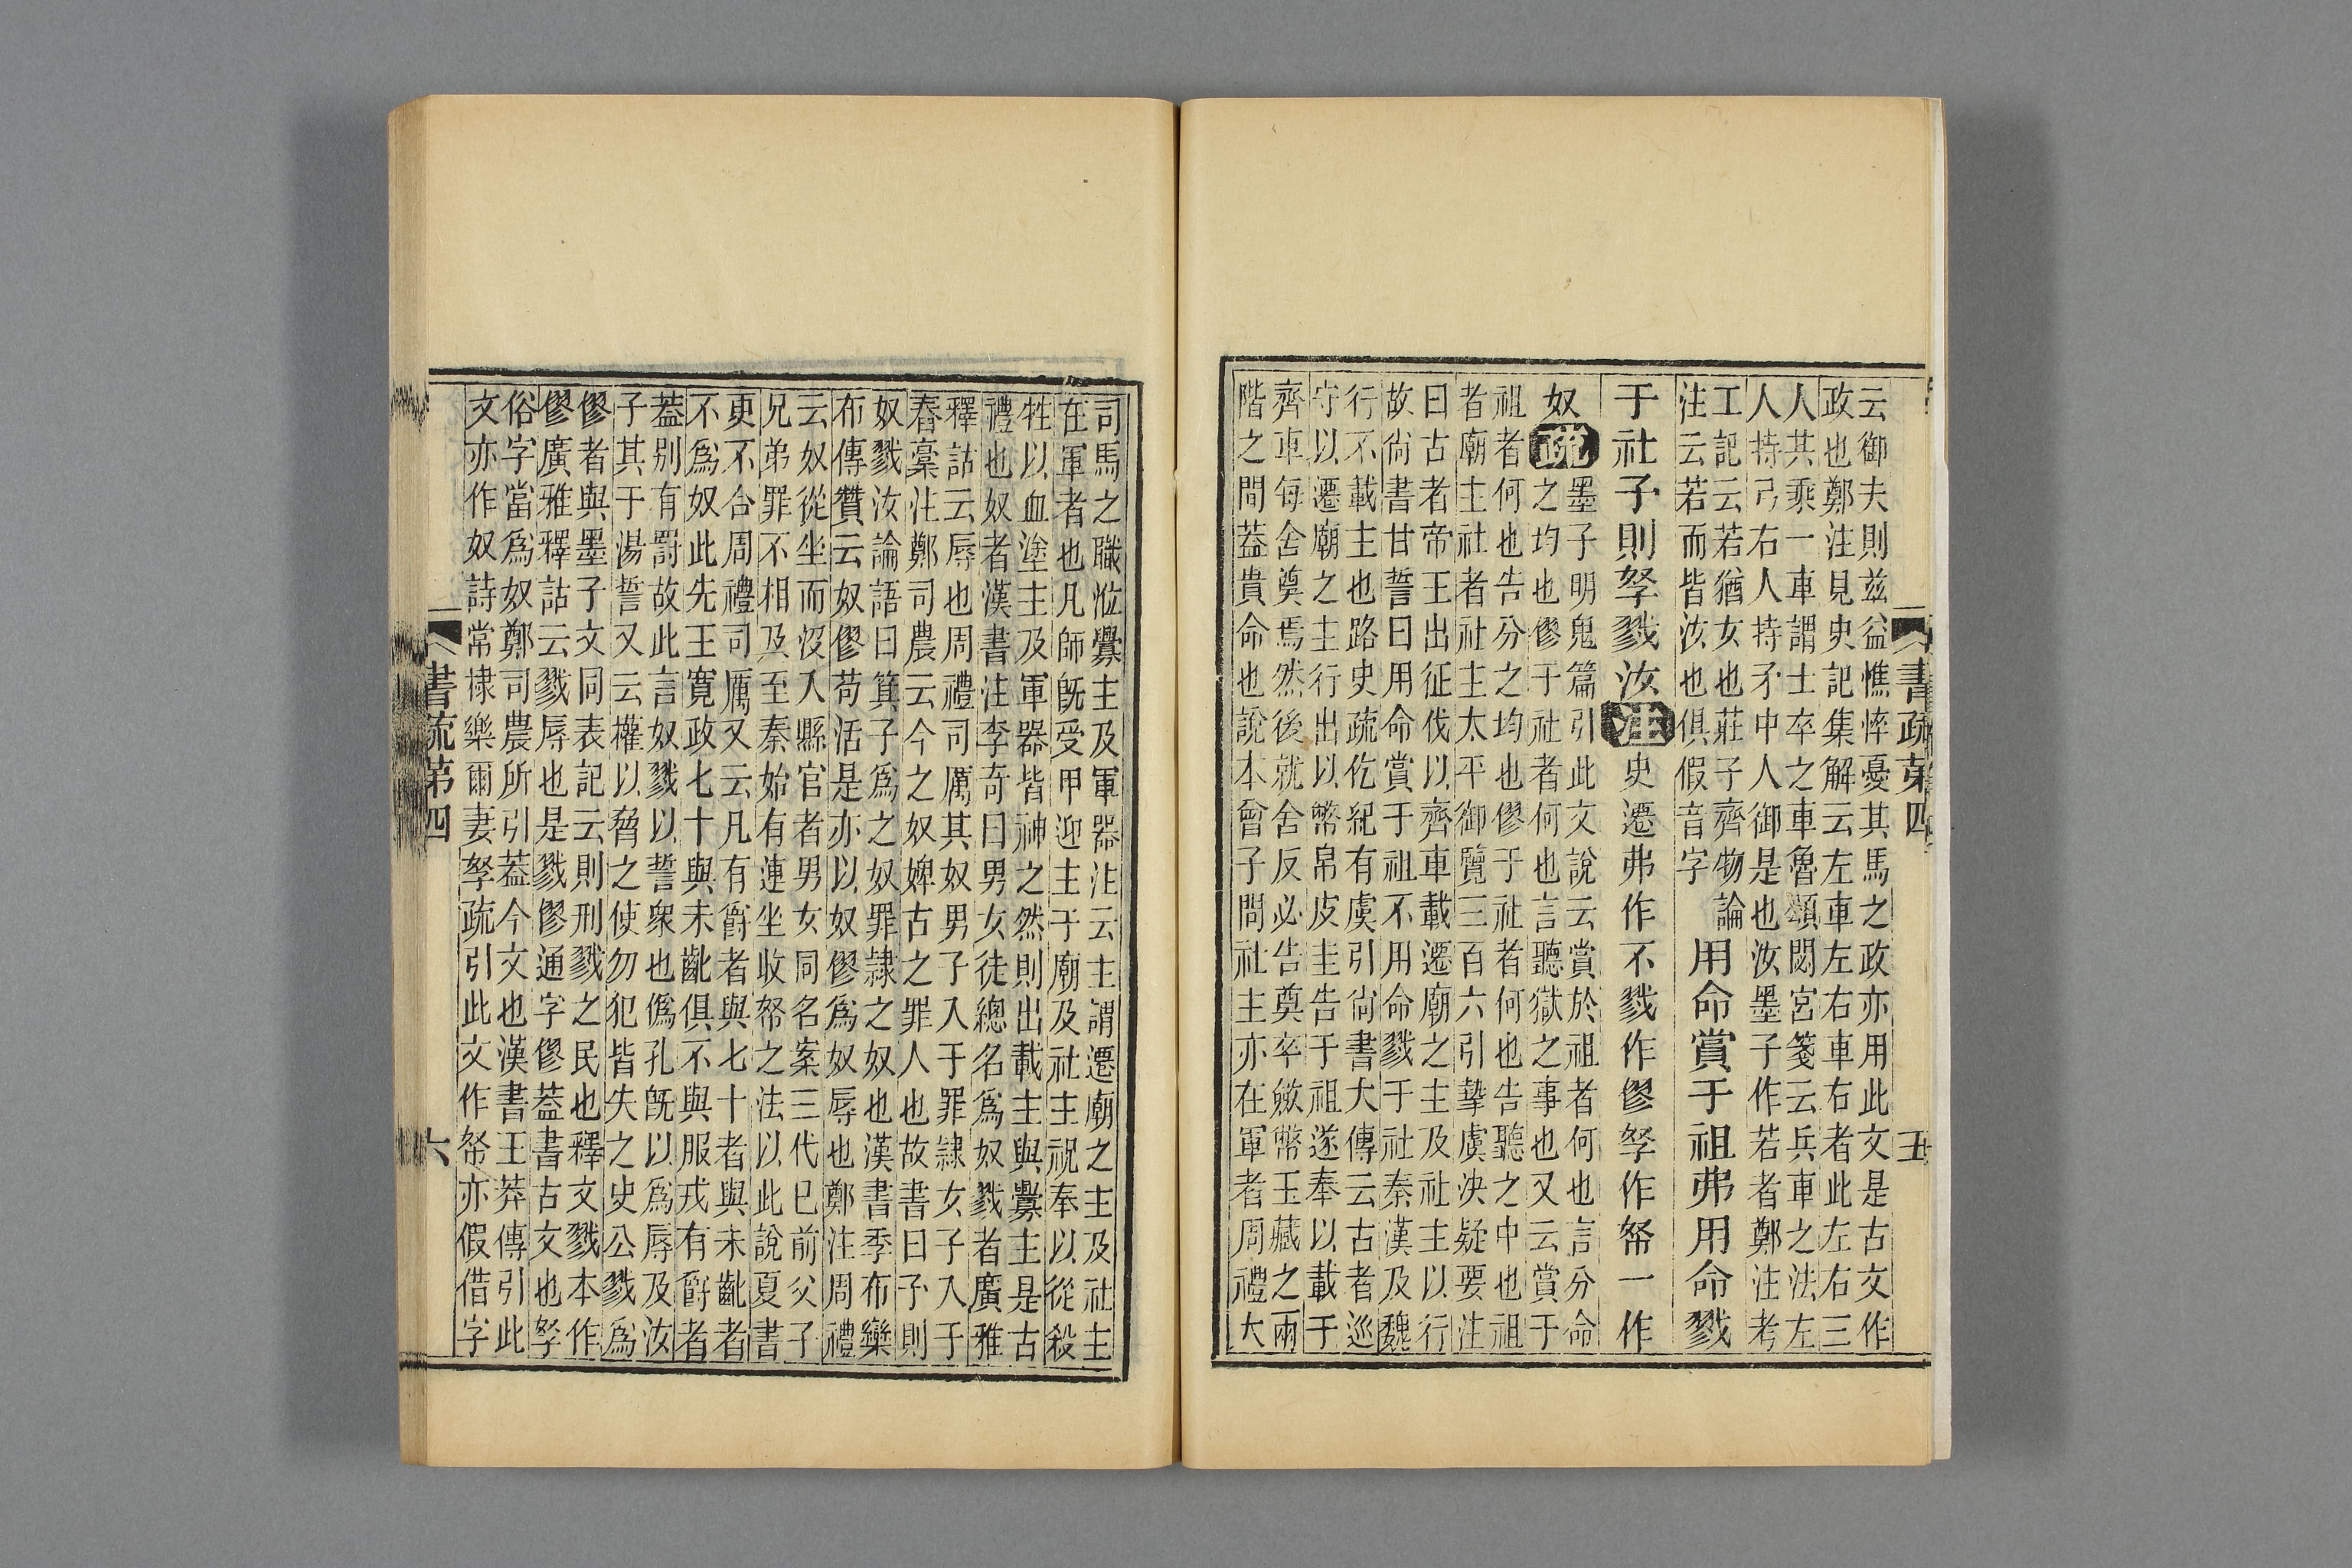 書疏第四
五
云御夫則兹益憔悴憂其馬之政亦用此文是古文作
政也鄭注見史記集解云左車左右車右者此左右三
人其乘一車謂士卒之車魯頌閟宮箋云兵車之法左
人持弓右人持矛中人御是也汝墨子作若者鄭注考
工記云若猶女也莊子齊物論
注云若而皆汝也俱假音字
用命賞于祖弗用命戮
于社予則孥戮汝注史遷弗作不戮作僇孥作帑一作
奴疏
墨子明鬼篇引此文說云賞於祖者何也言分命
之均也僇于社者何也言聽獄之事也又云賞于
祖者何也告分之均也僇于社者何也告聽之中也祖
者廟主社者社主太平御覽三百六引摯虞決疑要注
曰古者帝王出征伐以齊車載遷廟之主及社主以行
故尚書甘誓曰用命賞于祖不用命戮于社秦漢及魏
行不載主也路史疏仡紀有虞引尚書大傳云古者巡
守以遷廟之主行出以幣帛皮圭告于祖遂奉以載于
齊車每舍奠焉然後就舍反必告奠卒斂幣玉藏之兩
階之間葢貴命也說本曾子問社主亦在軍者周禮大
司馬之職涖釁主及軍器注云主謂遷廟之主及社主
在軍者也凡師旣受甲迎主于廟及社主祝奉以從殺
牲以血塗主及軍器皆神之然則出載主與釁主是古
禮也奴者漢書注李奇曰男女徒總名爲奴戮者廣雅
釋詁云辱也周禮司厲其奴男子入于罪隷女子入于
舂槀注鄭司農云今之奴婢古之罪人也故書曰予則
奴戮汝論語曰箕子爲之奴罪隷之奴也漢書季布欒
布傳贊云奴僇苟活是亦以奴僇爲奴辱也鄭注周禮
云奴從坐而沒入縣官者男女同名案三代已前父子
兄弟罪不相及至秦始有連坐收帑之法以此說夏書
更不合周禮司厲又云凡有爵者與七十者與未齔者
不爲奴此先王寬政七十與未齔俱不與服戎有爵者
葢別有罰故此言奴戮以誓衆也僞孔旣以爲辱及汝
子其于湯誓又云權以脅之使勿犯皆失之史公戮爲
僇者與墨子文同表記云則刑戮之民也釋文戮本作
僇廣雅釋詁云戮辱也是戮僇通字僇葢書古文也孥
俗字當爲奴鄭司農所引葢今文也漢書王莽傳引此
文亦作奴詩常棣樂爾妻孥疏引此文作帑亦假借字
書疏第四
六